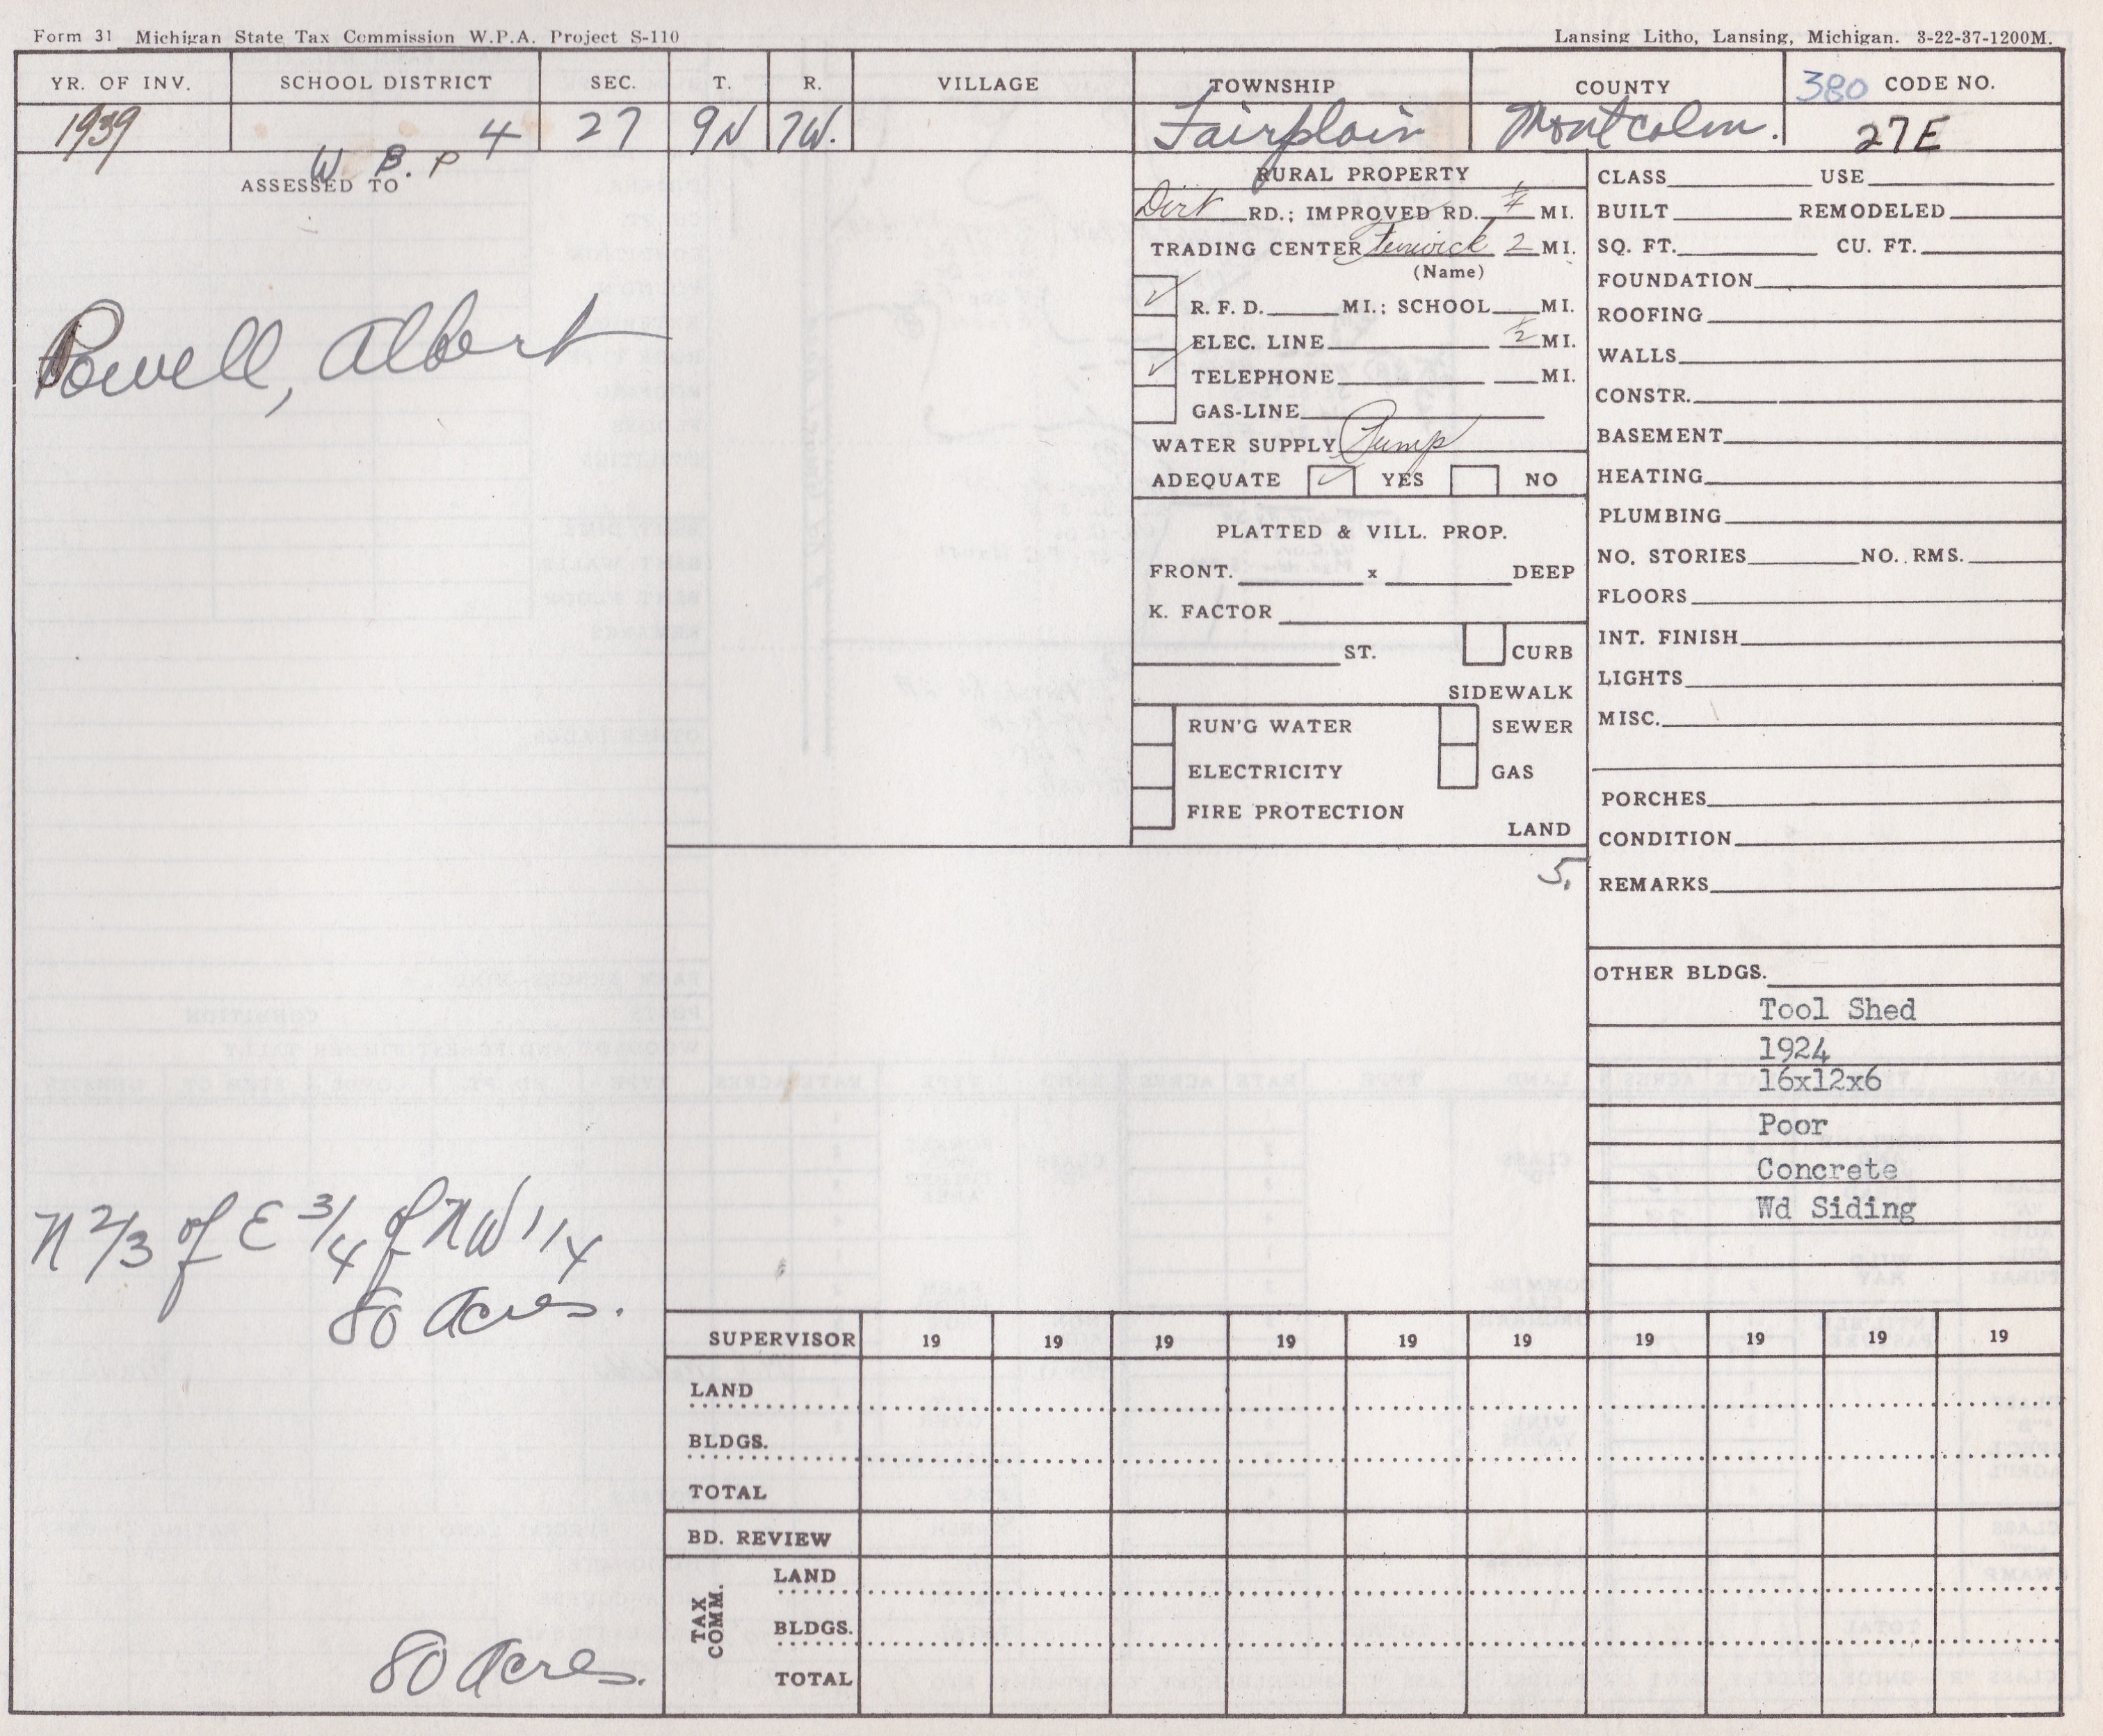 Form 31 Michigan State Tax Commission W.P.A. Project S-110
Lansing Litho, Lansing, Michigan. 3-22-37-1200M.
YR. OF INV. SCHOOL DISTRICT SEC. T. R. VILLAGE TOWNSHIP COUNTY 380 CODE NO.
1939 4 27 9N 7W. Fairplain Montcalm. 27E
W. B. P
ASSESSED TO
Powell, Albert
N 2/3 of E 3/4 of NW 1/4
80 Acres.
80 Acres.
RURAL PROPERTY
Dirt RD.; IMPROVED RD. MI.
TRADING CENTER Fenwick 2 MI.
(Name)
✓ R. F. D. MI.; SCHOOL MI.
ELEC. LINE 1/2 MI.
✓ TELEPHONE MI.
GAS-LINE
WATER SUPPLY Pump
ADEQUATE ✓ YES NO
PLATTED & VILL. PROP.
FRONT. x DEEP
K. FACTOR
ST. CURB
SIDEWALK
RUN'G WATER SEWER
ELECTRICITY GAS
FIRE PROTECTION
LAND
5.
CLASS USE
BUILT REMODELED
SQ. FT. CU. FT.
FOUNDATION
ROOFING
WALLS
CONSTR.
BASEMENT
HEATING
PLUMBING
NO. STORIES NO. RMS.
FLOORS
INT. FINISH
LIGHTS
MISC.
PORCHES
CONDITION
REMARKS
OTHER BLDGS.
Tool Shed
1924
16x12x6
Poor
Concrete
Wd Siding
SUPERVISOR 19 19 19 19 19 19 19 19 19 19
LAND
BLDGS.
TOTAL
BD. REVIEW
TAX COMM.
LAND
BLDGS.
TOTAL